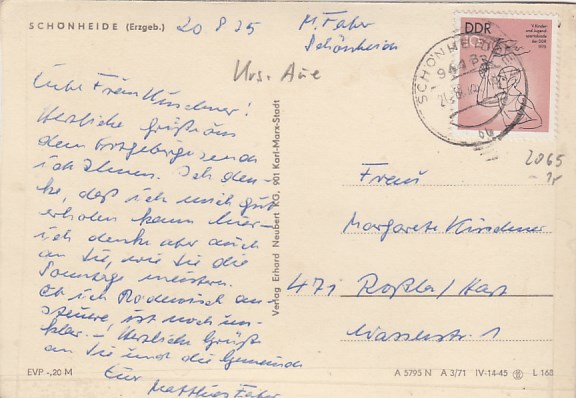 SCHÖNHEIDE (Erzgeb.)
20 8 75
M. Faber
Schönheide
Krs. Aue
Liebe Frau Kirschner!
Herzliche Grüße aus
dem Erzgebirge sende
ich Ihnen. Ich den-
ke, daß ich mich gut
erholen kann hier-
ich denke aber auch
an Sie, wie Sie die
Sonntage meistern.
Ob ich Rodewisch an-
steuere, ist noch un-
klar - Herzliche Grüße
an Sie und die Gemeinde
Euer
Matthias Faber
EVP -,20 M
Verlag Erhard Neubert KG, 901 Karl-Marx-Stadt
DDR
V. Kinder-
und Jugend-
spartakiade
der DDR
1975
SCHÖNHEIDE
2065
Frau
Margarete Kirschner
471 Roßla/Harz
Wasserstr. 1
A 5795 N A 3/71 IV-14-45 L 168